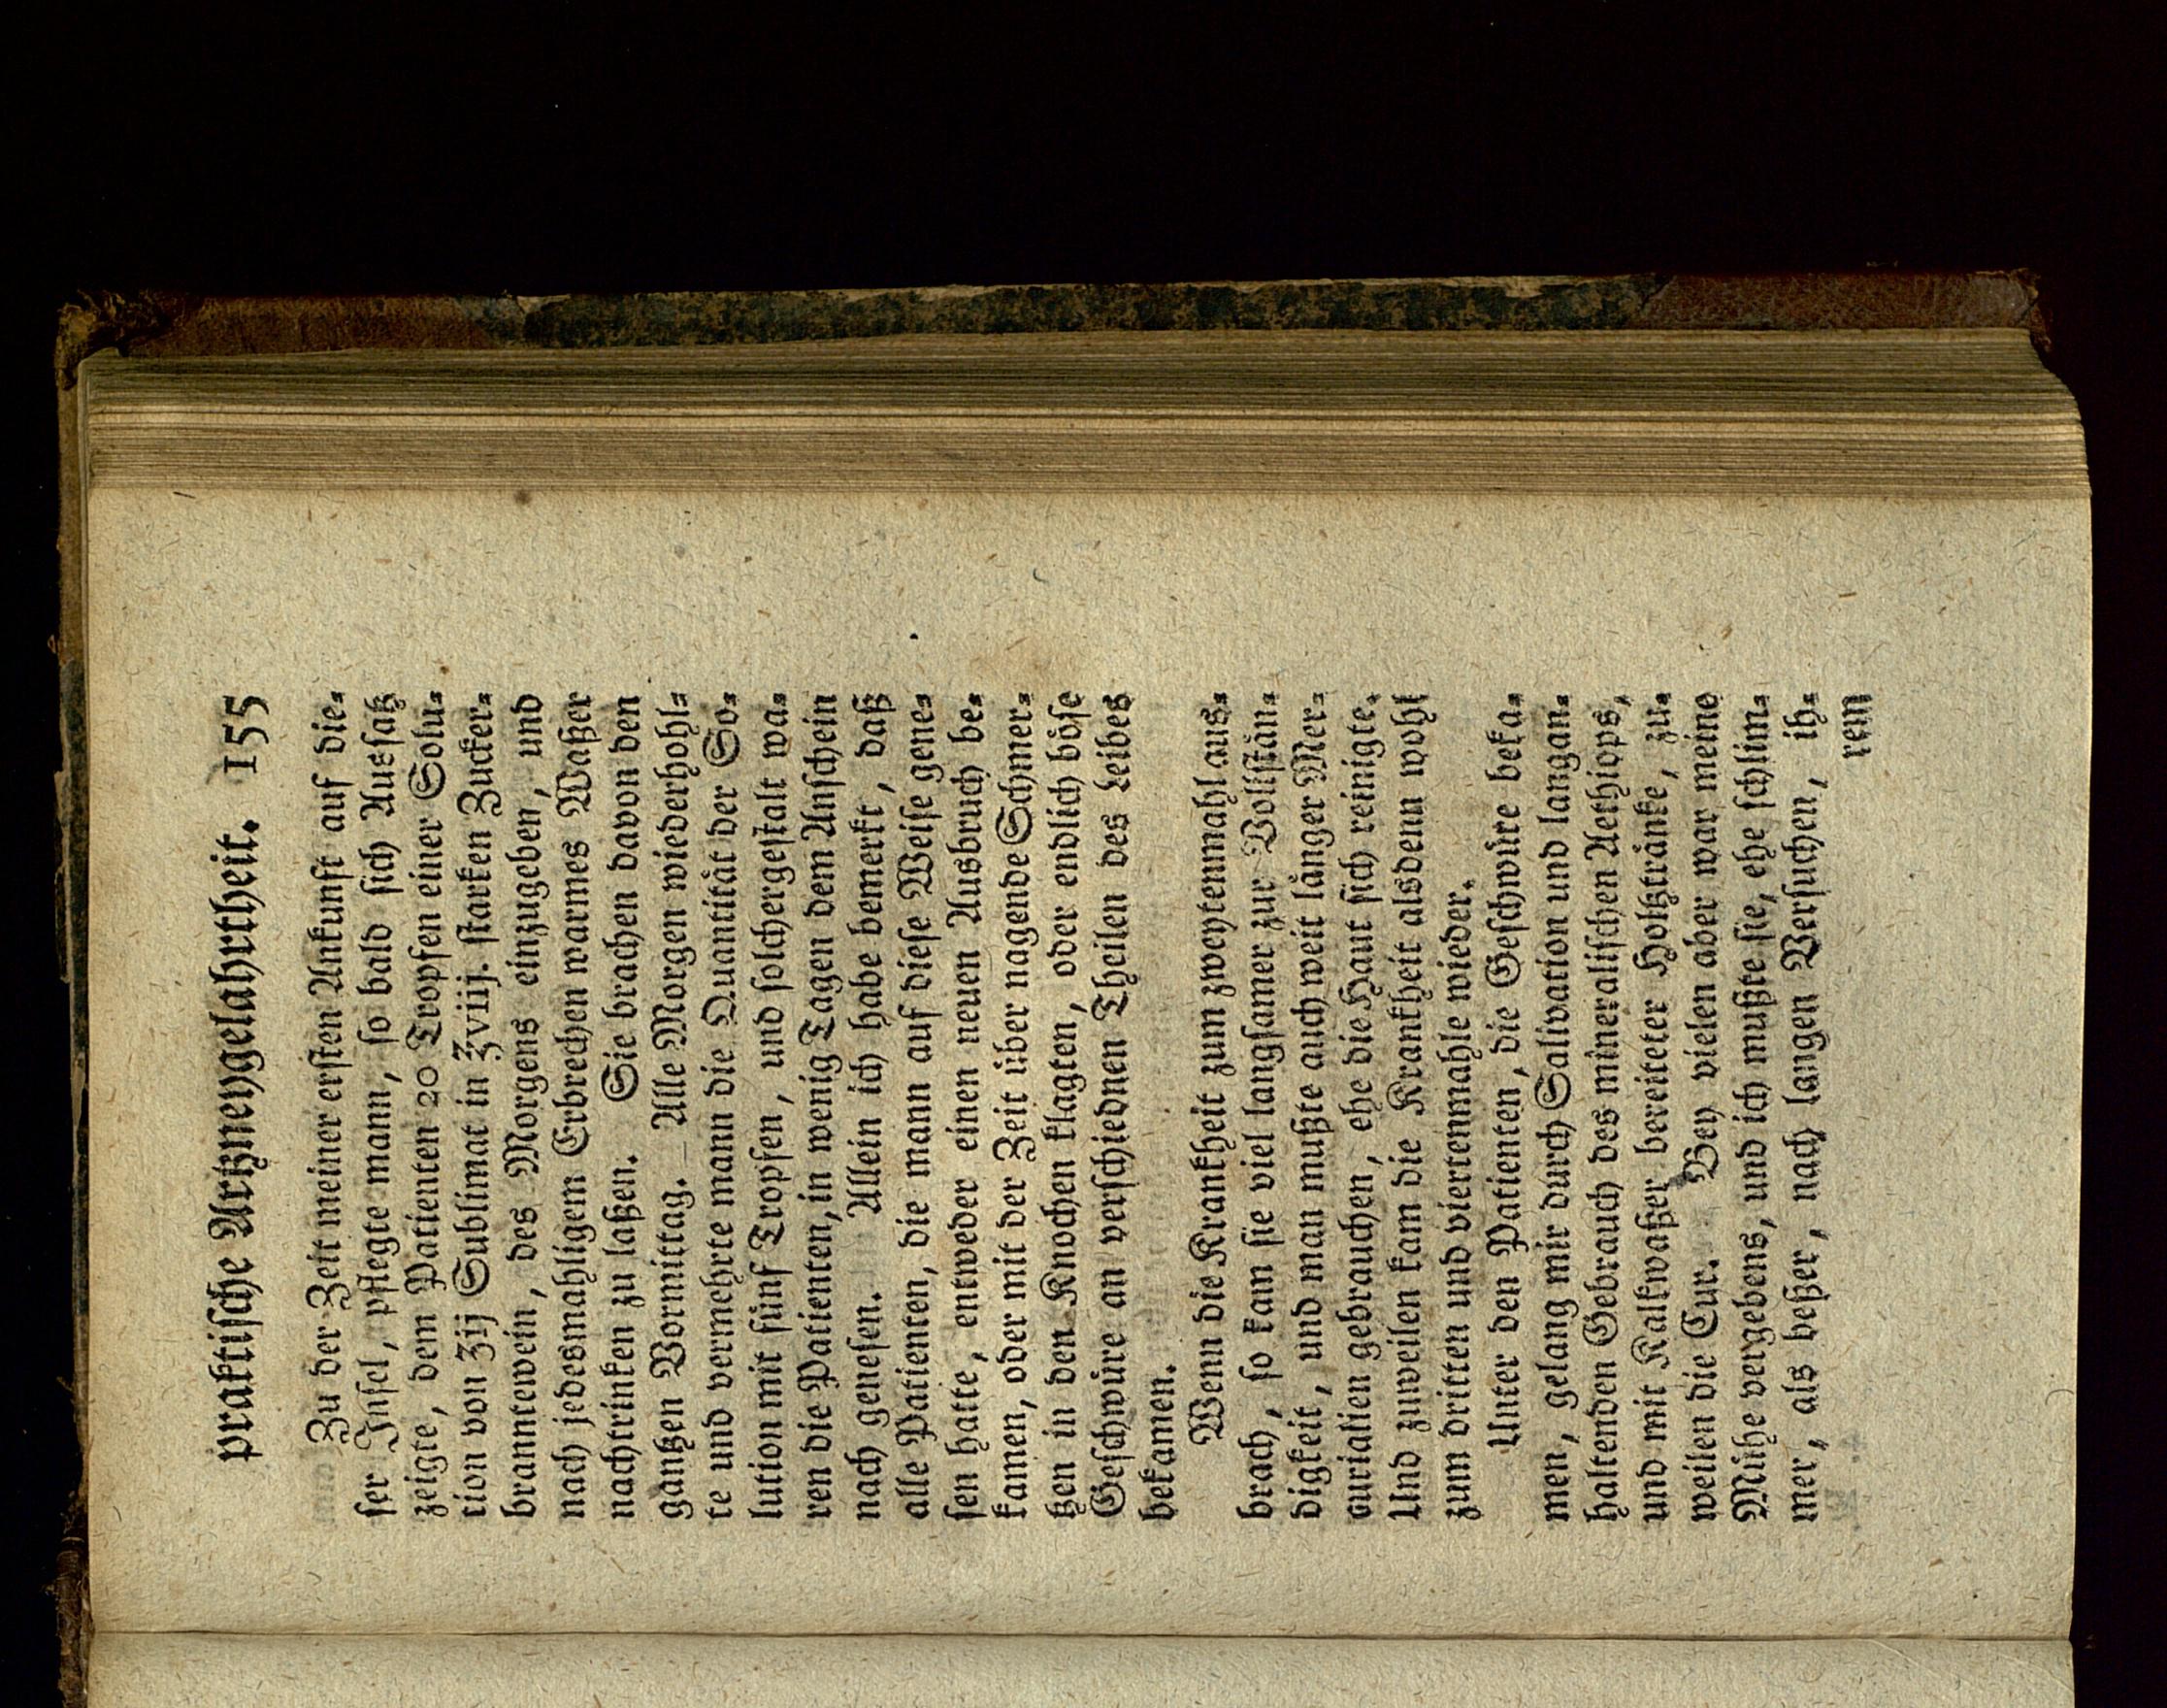 praktische Artzneygelahrtheit. 155
Zu der Zeit meiner ersten Ankunft auf die-
ser Insel, pflegte mann, so bald sich Aussatz
zeigte, dem Patienten 20 Tropfen einer Solu-
tion von ʒij Sublimat in ℥viij. starken Zucker-
branntewein, des Morgens einzugeben, und
nach jedesmahligem Erbrechen warmes Waßer
nachtrinken zu laßen. Sie brachen davon den
gantzen Vormittag. Alle Morgen wiederhohl-
te und vermehrte mann die Quantität der So-
lution mit fünf Tropfen, und solchergestalt wa-
ren die Patienten, in wenig Tagen dem Anschein
nach genesen. Allein ich habe bemerkt, daß
alle Patienten, die mann auf diese Weise gene-
sen hatte, entweder einen neuen Ausbruch be-
kamen, oder mit der Zeit über nagende Schmer-
tzen in den Knochen klagten, oder endlich böse
Geschwüre an verschiednen Theilen des Leibes
bekamen.
Wenn die Krankheit zum zweytenmahl aus-
brach, so kam sie viel langsamer zur Vollstän-
digkeit, und man mußte auch weit länger Mer-
curialien gebrauchen, ehe die Haut sich reinigte.
Und zuweilen kam die Krankheit alsdenn wohl
zum dritten und viertenmahle wieder.
Unter den Patienten, die Geschwüre beka-
men, gelang mir durch Salivation und langan-
haltenden Gebrauch des mineralischen Aethiops,
und mit Kalkwaßer bereiteter Holtztränke, zu-
weilen die Cur. Bey vielen aber war meine
Mühe vergebens, und ich mußte sie, ehe schlim-
mer, als beßer, nach langen Versuchen, ih-
rem